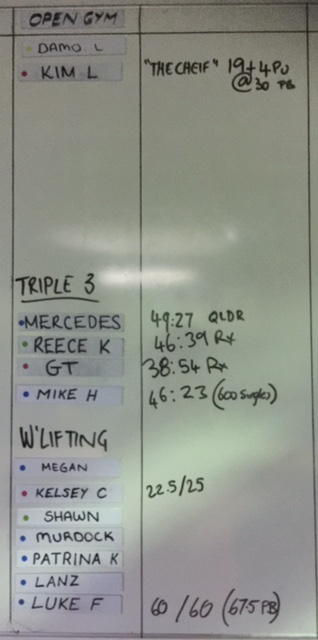 OPEN GYM
DAMO L
KIM L "THE CHEIF" 19+4PU
@30 PB
TRIPLE 3
MERCEDES 49:27 QLDR
REECE K 46:39 Rx
GT 38:54 Rx
MIKE H 46:23 (600 singles)
W'LIFTING
MEGAN
KELSEY C 22.5/25
SHAWN
MURDOCK
PATRINA K
LANZ
LUKE F 60/60 (67.5 PB)